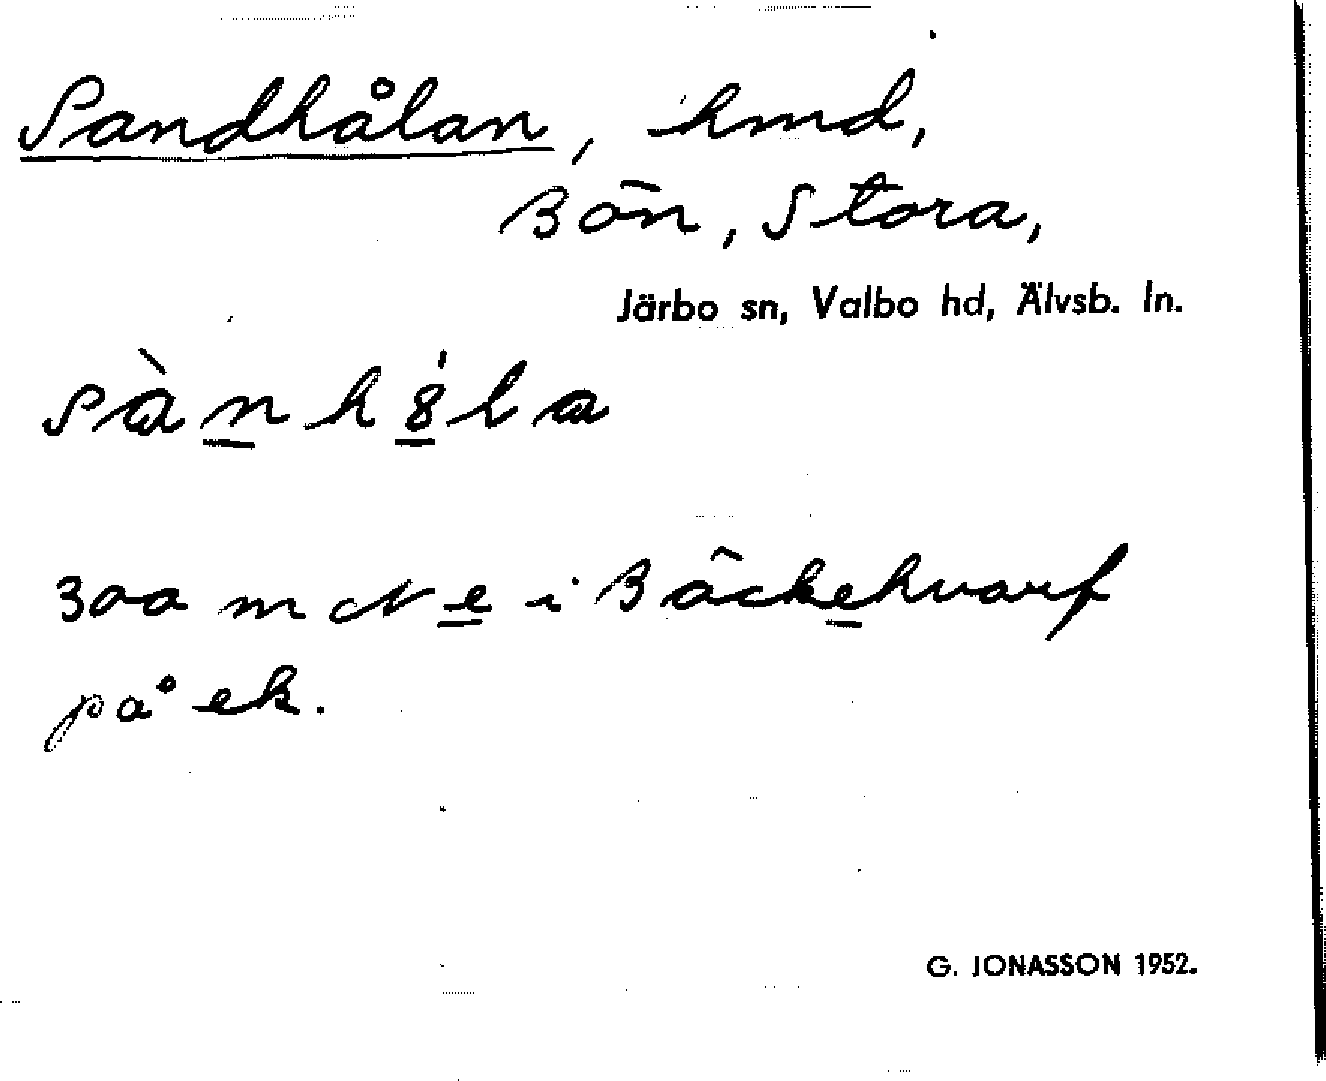 Sandhålan, hmd,
Bön, Stora,
Järbo sn, Valbo hd, Älvsb. ln.
sành8́la
300 m N e i Bäckehvarf
på ek.
G. JONASSON 1952.